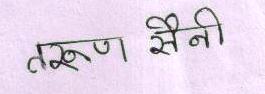 तरूण सैनी